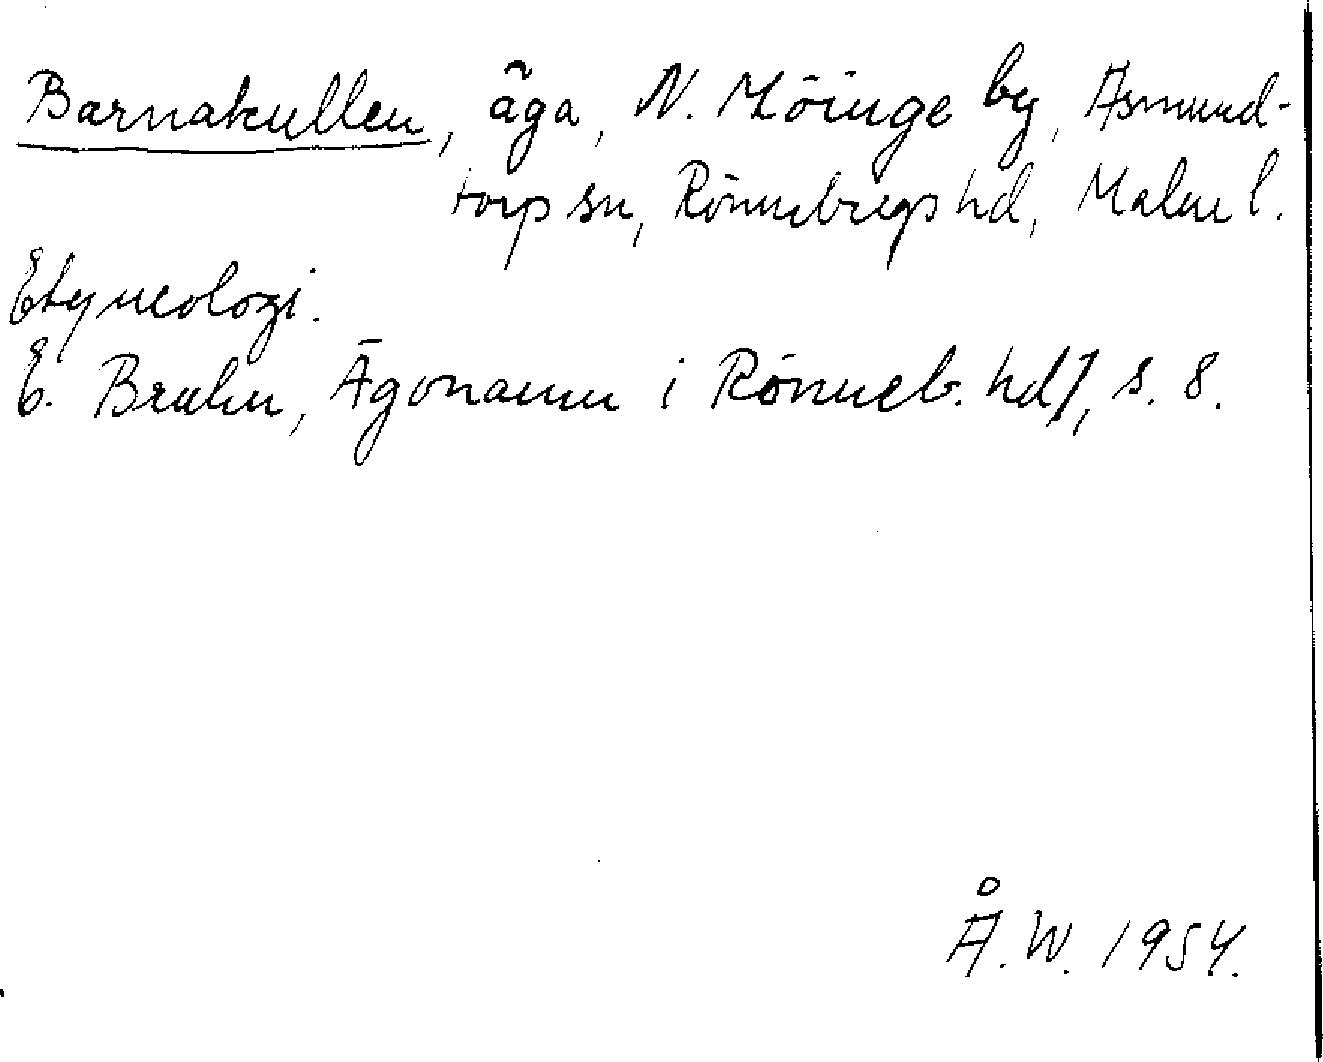 Barnakullen, äga, N. Möinge by, Asmund-
torp sn, Rönnebergs hd, Malm l.
Etymologi.
E. Bruhn, Ägonamn i Rönneb. hd, s. 8.
Å. W. 1954.